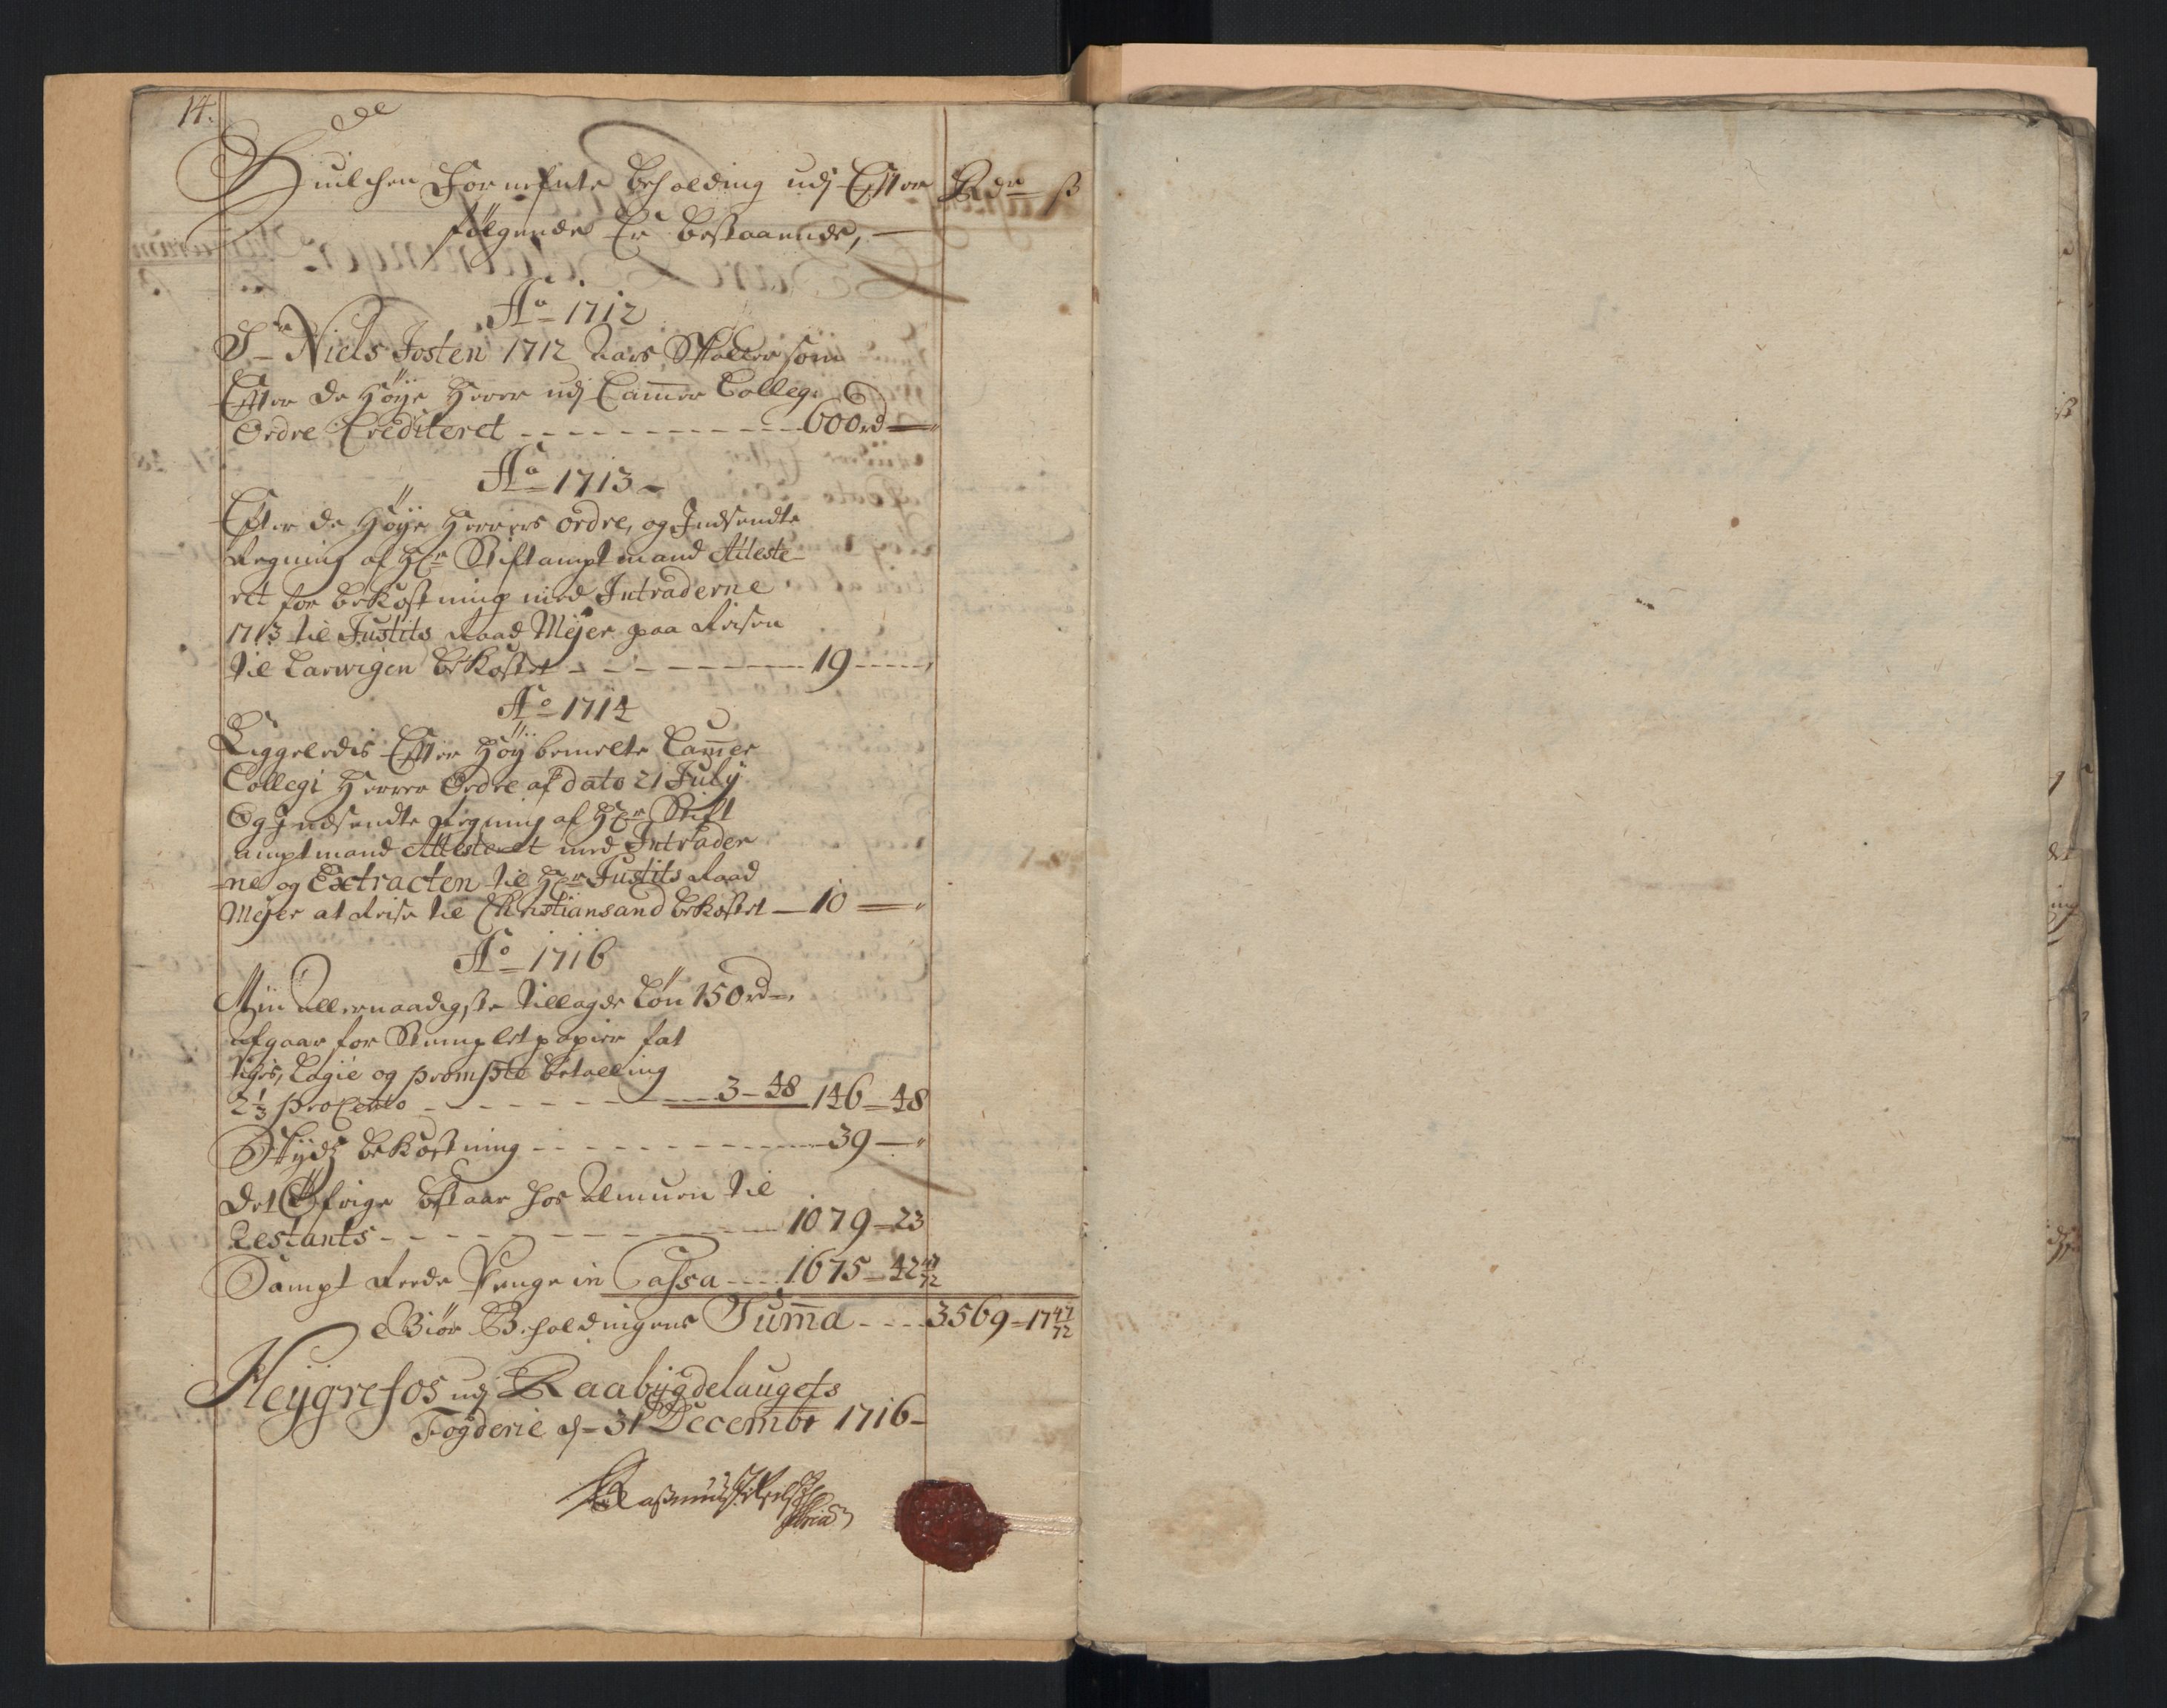 14.
Huilchen Formeente beholding udj Efter Rdr ß
følgende Er bestaaende,
Ao 1712
Sr Niels Josten 1712 Aars Skatter som
Efter de Høÿe Herrer udj Cam̄er Collegi
Ordre Crediteret - - - 600rd
Ao 1713
Efter de Høÿe Herrers ordre, og Indsendte
Regning af Hr Stiftamptmand Atteste-
ret for bekostning med Intraderne
1713 til Justits Raad Meÿer paa Reisen
til Larwigen bekostet - - - 19
Ao 1714
Liggeledis Efter Høÿbemelte Cam̄er
Collegi Herrer Ordre af dato 21 Julÿ
Og Indsendte Regning af Hr Stift
amptmand Attesteret med Intrader
-ne og Extracten til Hr Justits Raad
Meÿer at Reise til Christiansand bekostet - 10
Ao 1716
Min Allernaadigste tillagde Løn 150rd
afgaar for Stemplet papier fat
tiges, Lagie og prompte betalling
2 1/3 proCento - - - 3-48 146-48
Skÿdz bekostning - - - 39
Det Øfrige bestaar hos Almuen til
Restants - - - 1079-23
Sampt Reede Penge in Cassa - - - 1675-42 47/72
Giør Beholdningens Sum̄a - - - 3569-17 47/72
Heÿgrefos udj Raabÿgdelaugets
Fogderie d- 31 Decembr 1716